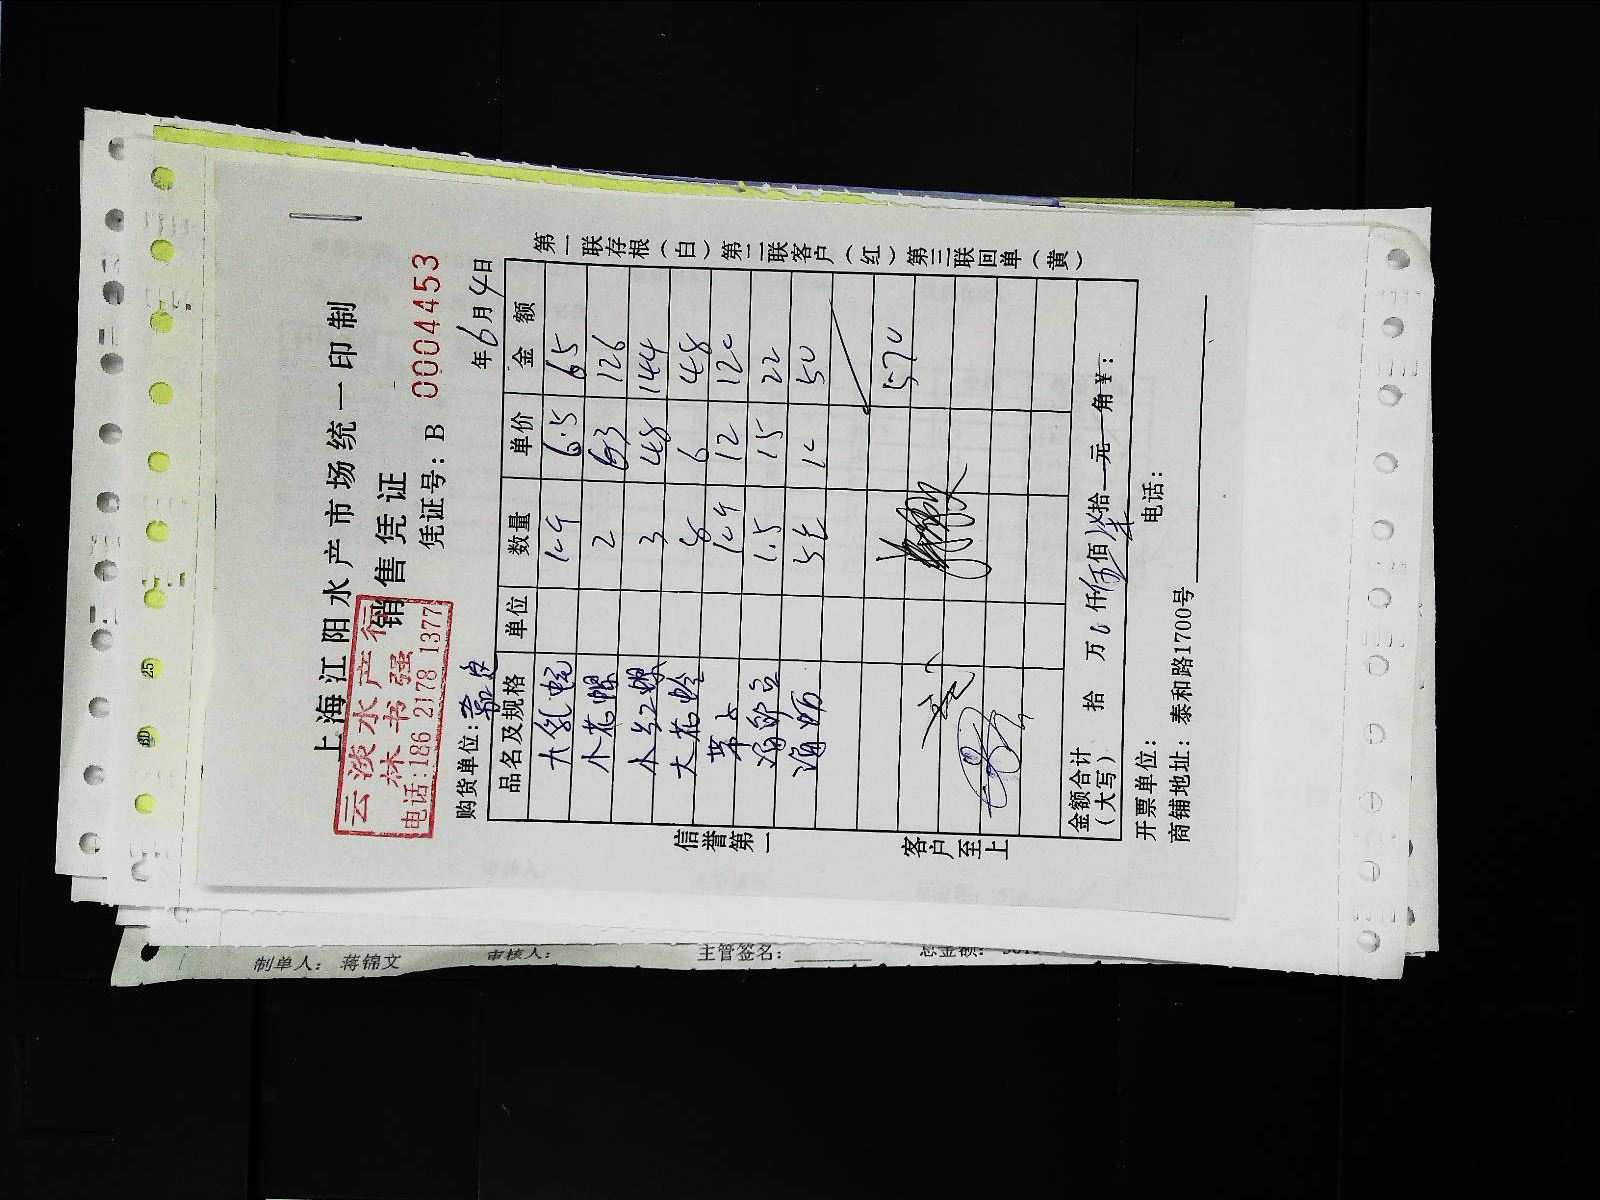 上海江阳水产市场统一印制
销售凭证
凭证号：B 0004453
云淡水产行
林书强
电话:186 2178 1377
购货单位：
年6月4日
品名及规格 单位 数量 单价 金额
6.5 65
小花螺 2 63 126
小红螺 3 48 144
大花蛤 8 6 48
12 120
1.5 15 22
海蛎 10 50
570
金额合计（大写） 拾 万 0 仟 伍 佰 柒 拾 元 角 ¥：
开票单位： 电话：
商铺地址：泰和路1700号
第一联存根（白）第二联客户（红）第三联回单（黄）
信誉第一
客户至上
制单人： 蒋锦文 审核人： 主管签名： 总金额：